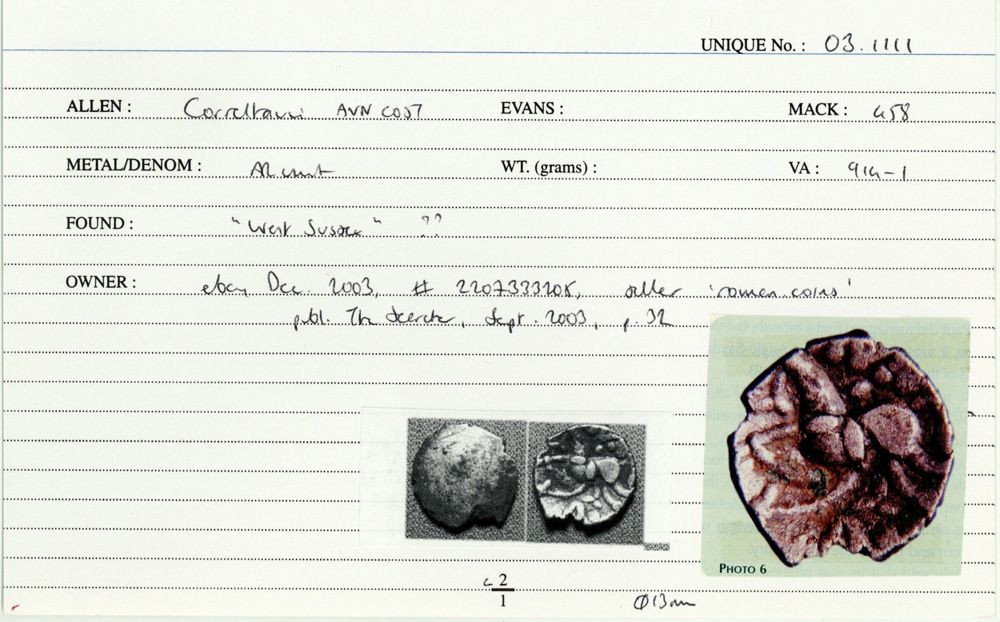 UNIQUE No. : 03.1111
ALLEN : Correltauvi AVN COST EVANS : MACK : 458
METAL/DENOM : AR unit WT. (grams) : VA : 914-1
FOUND : "West Sussex" ??
OWNER : ebay Dec. 2003, # 2207333205, seller 'roman coins'
publ. The Searcher, Sept. 2003, p. 32
PHOTO 6
c 2
1
Ø13mm